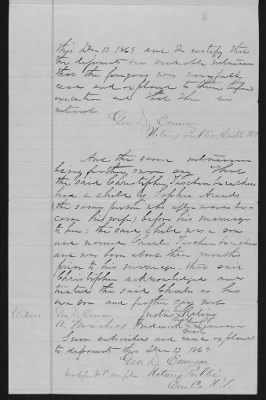 this Dec 13 1869 and I certify that
the deponents are credible witnesses
that the foregoing was carefully
read and explained to them before
execution and that I have no
interest
Geo. D. Emerson
Notary Public, Erie Co NY
And the same witnesses
being further sworn say That
the said Christopher
had a child by Sophia
(the same person who after wards be-
came his wife) before his marriage
to her; the said child was a son
and named Charles
and was born about three months
prior to his marriage; that said
Christopher acknowledged and
treated the said Charles as his
own son and further says not
Witness Geo D. Emerson
Frederick his
mark
Sworn subscribed and read explained
to deponents this Dec 13 1869
Geo. D. Emerson
Notary Public
Erie Co N.Y.